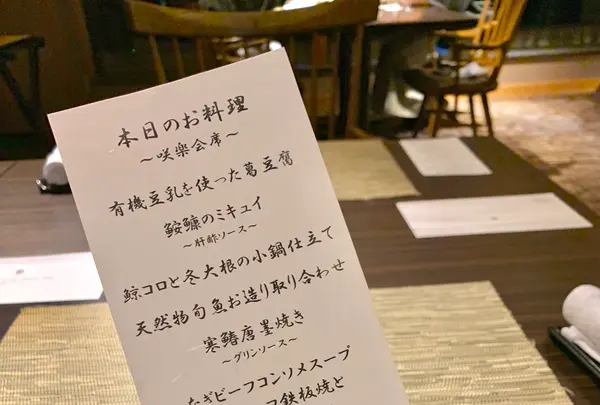 本日のお料理
～咲樂会席～
有機豆乳を使った葛豆腐
鮟鱇のミキュイ
～肝酢ソース～
鯨コロと冬大根の小鍋仕立て
天然物旬魚お造り取り合わせ
寒鰆唐墨焼き
～グリンソース～
なぎビーフコンソメスープ
鉄板焼と